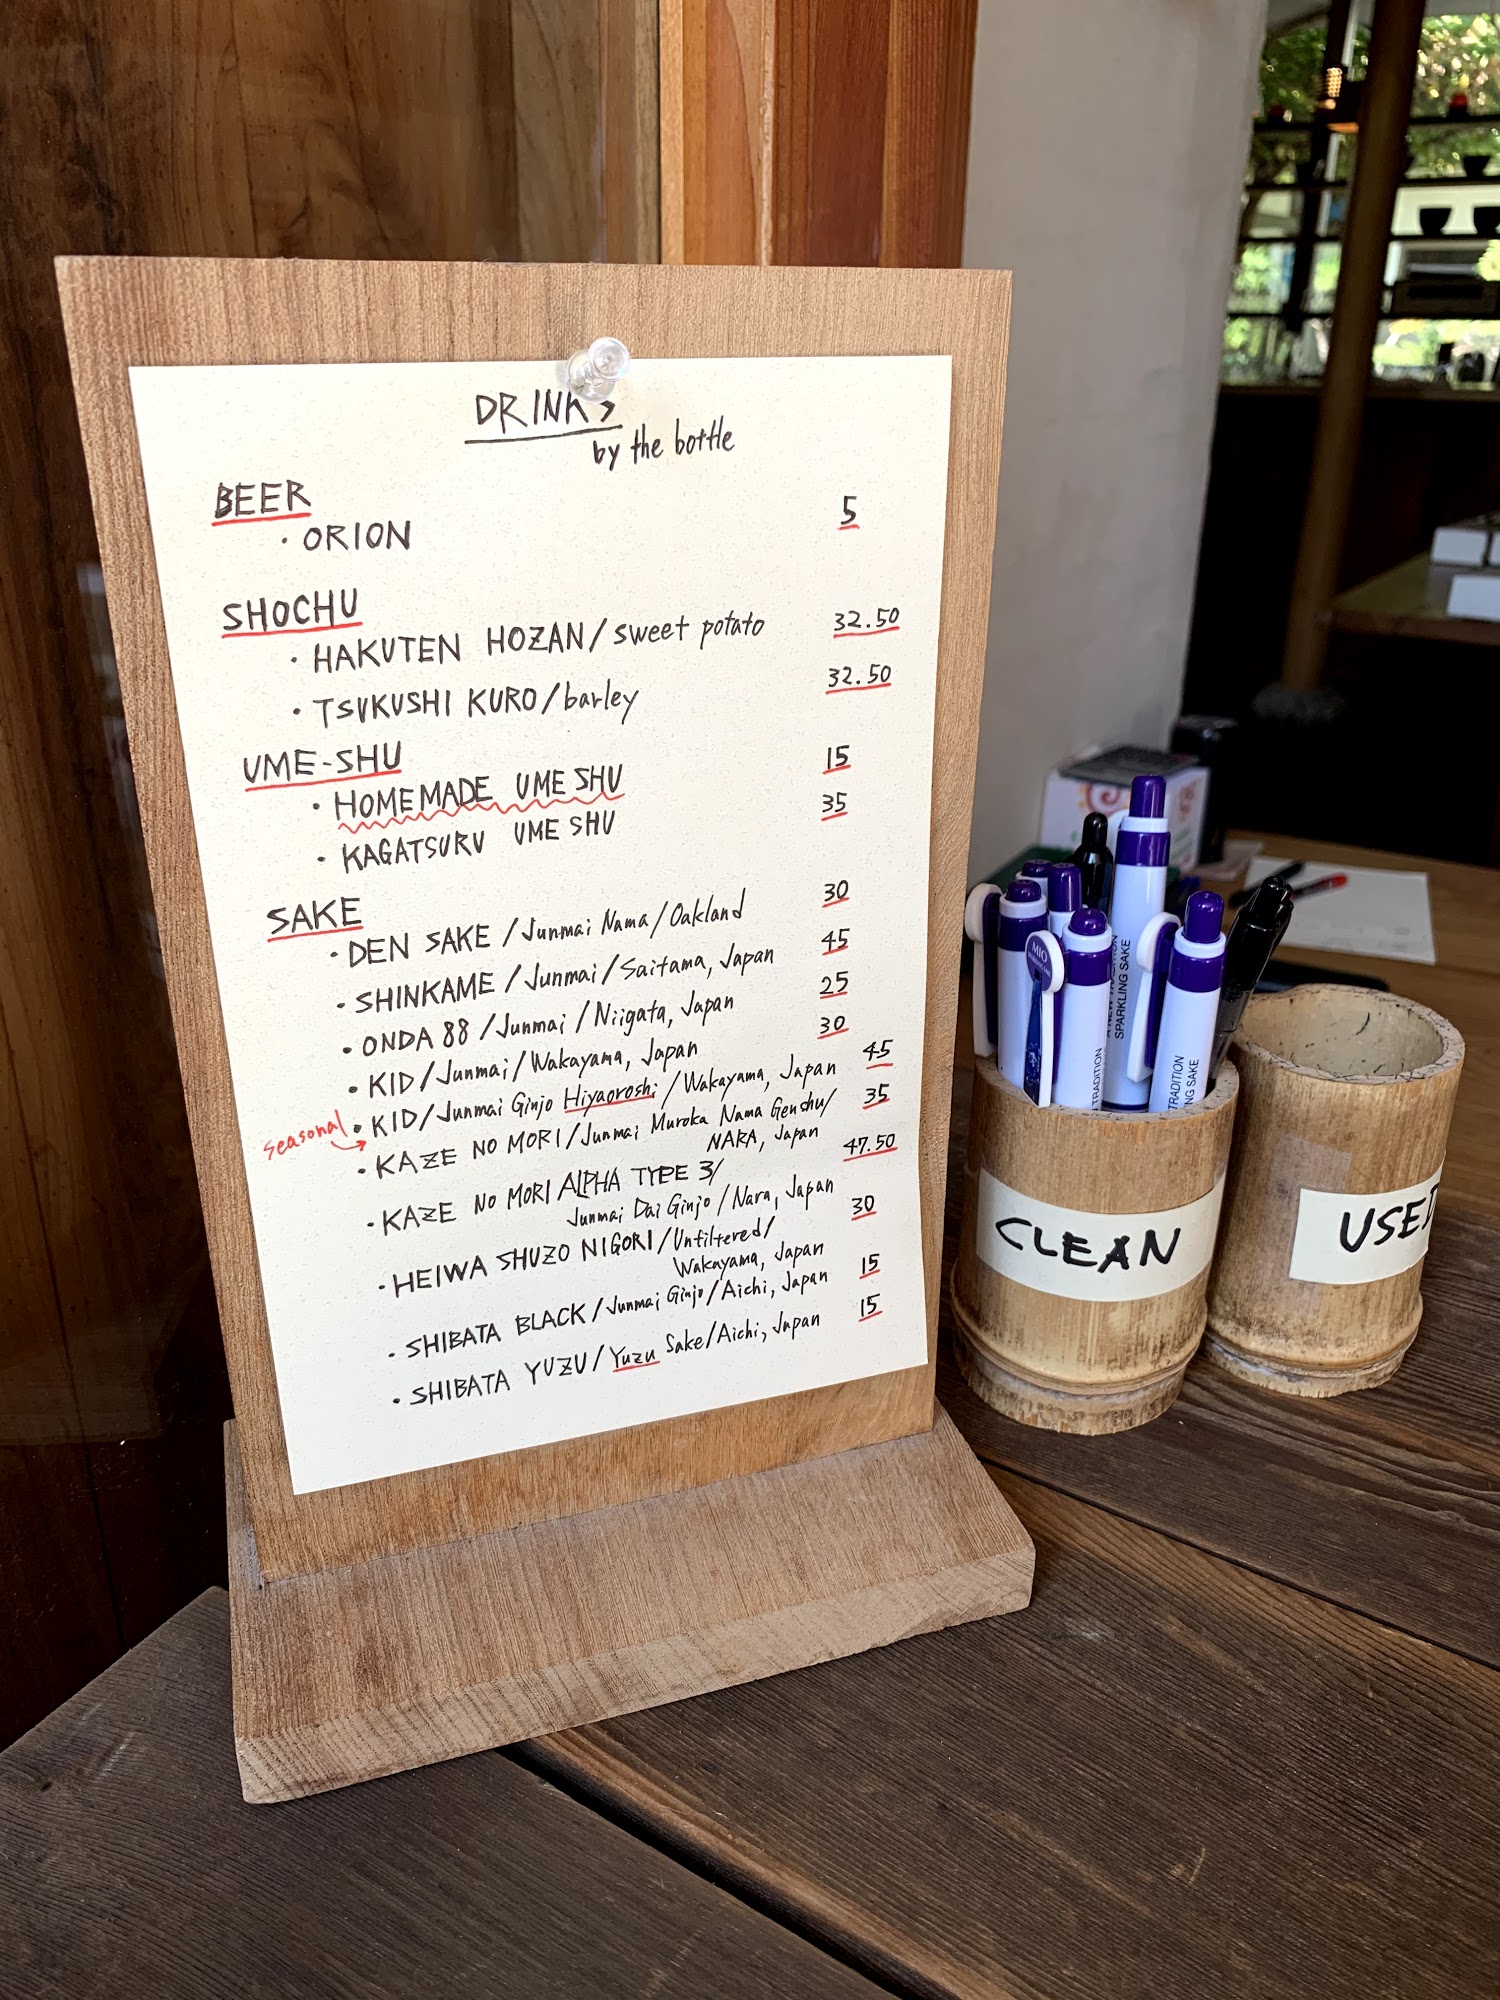 DRINKS
by the bottle
BEER
· ORION 5
SHOCHU
· HAKUTEN HOZAN/sweet potato 32.50
· TSUKUSHI KURO/barley 32.50
UME-SHU
· HOMEMADE UME SHU 15
· KAGATSURU UME SHU 35
SAKE
· DEN SAKE/Junmai Nama/Oakland 30
· SHINKAME/Junmai/Saitama, Japan 45
· ONDA 88/Junmai/Niigata, Japan 25
· KID/Junmai/Wakayama, Japan 30
seasonal · KID/Junmai Ginjo Hiyaoroshi/Wakayama, Japan 45
· KAZE NO MORI/Junmai Muroka Nama Genshu/ 35
NARA, Japan
· KAZE NO MORI ALPHA TYPE 3/ 47.50
Junmai Dai Ginjo/Nara, Japan
· HEIWA SHUZO NIGORI/Unfiltered/ 30
Wakayama, Japan
· SHIBATA BLACK/Junmai Ginjo/Aichi, Japan 15
· SHIBATA YUZU/Yuzu Sake/Aichi, Japan 15
MIO
A NEW TRADITION
SPARKLING SAKE
TRADITION
TRADITION
NG SAKE
CLEAN
USED